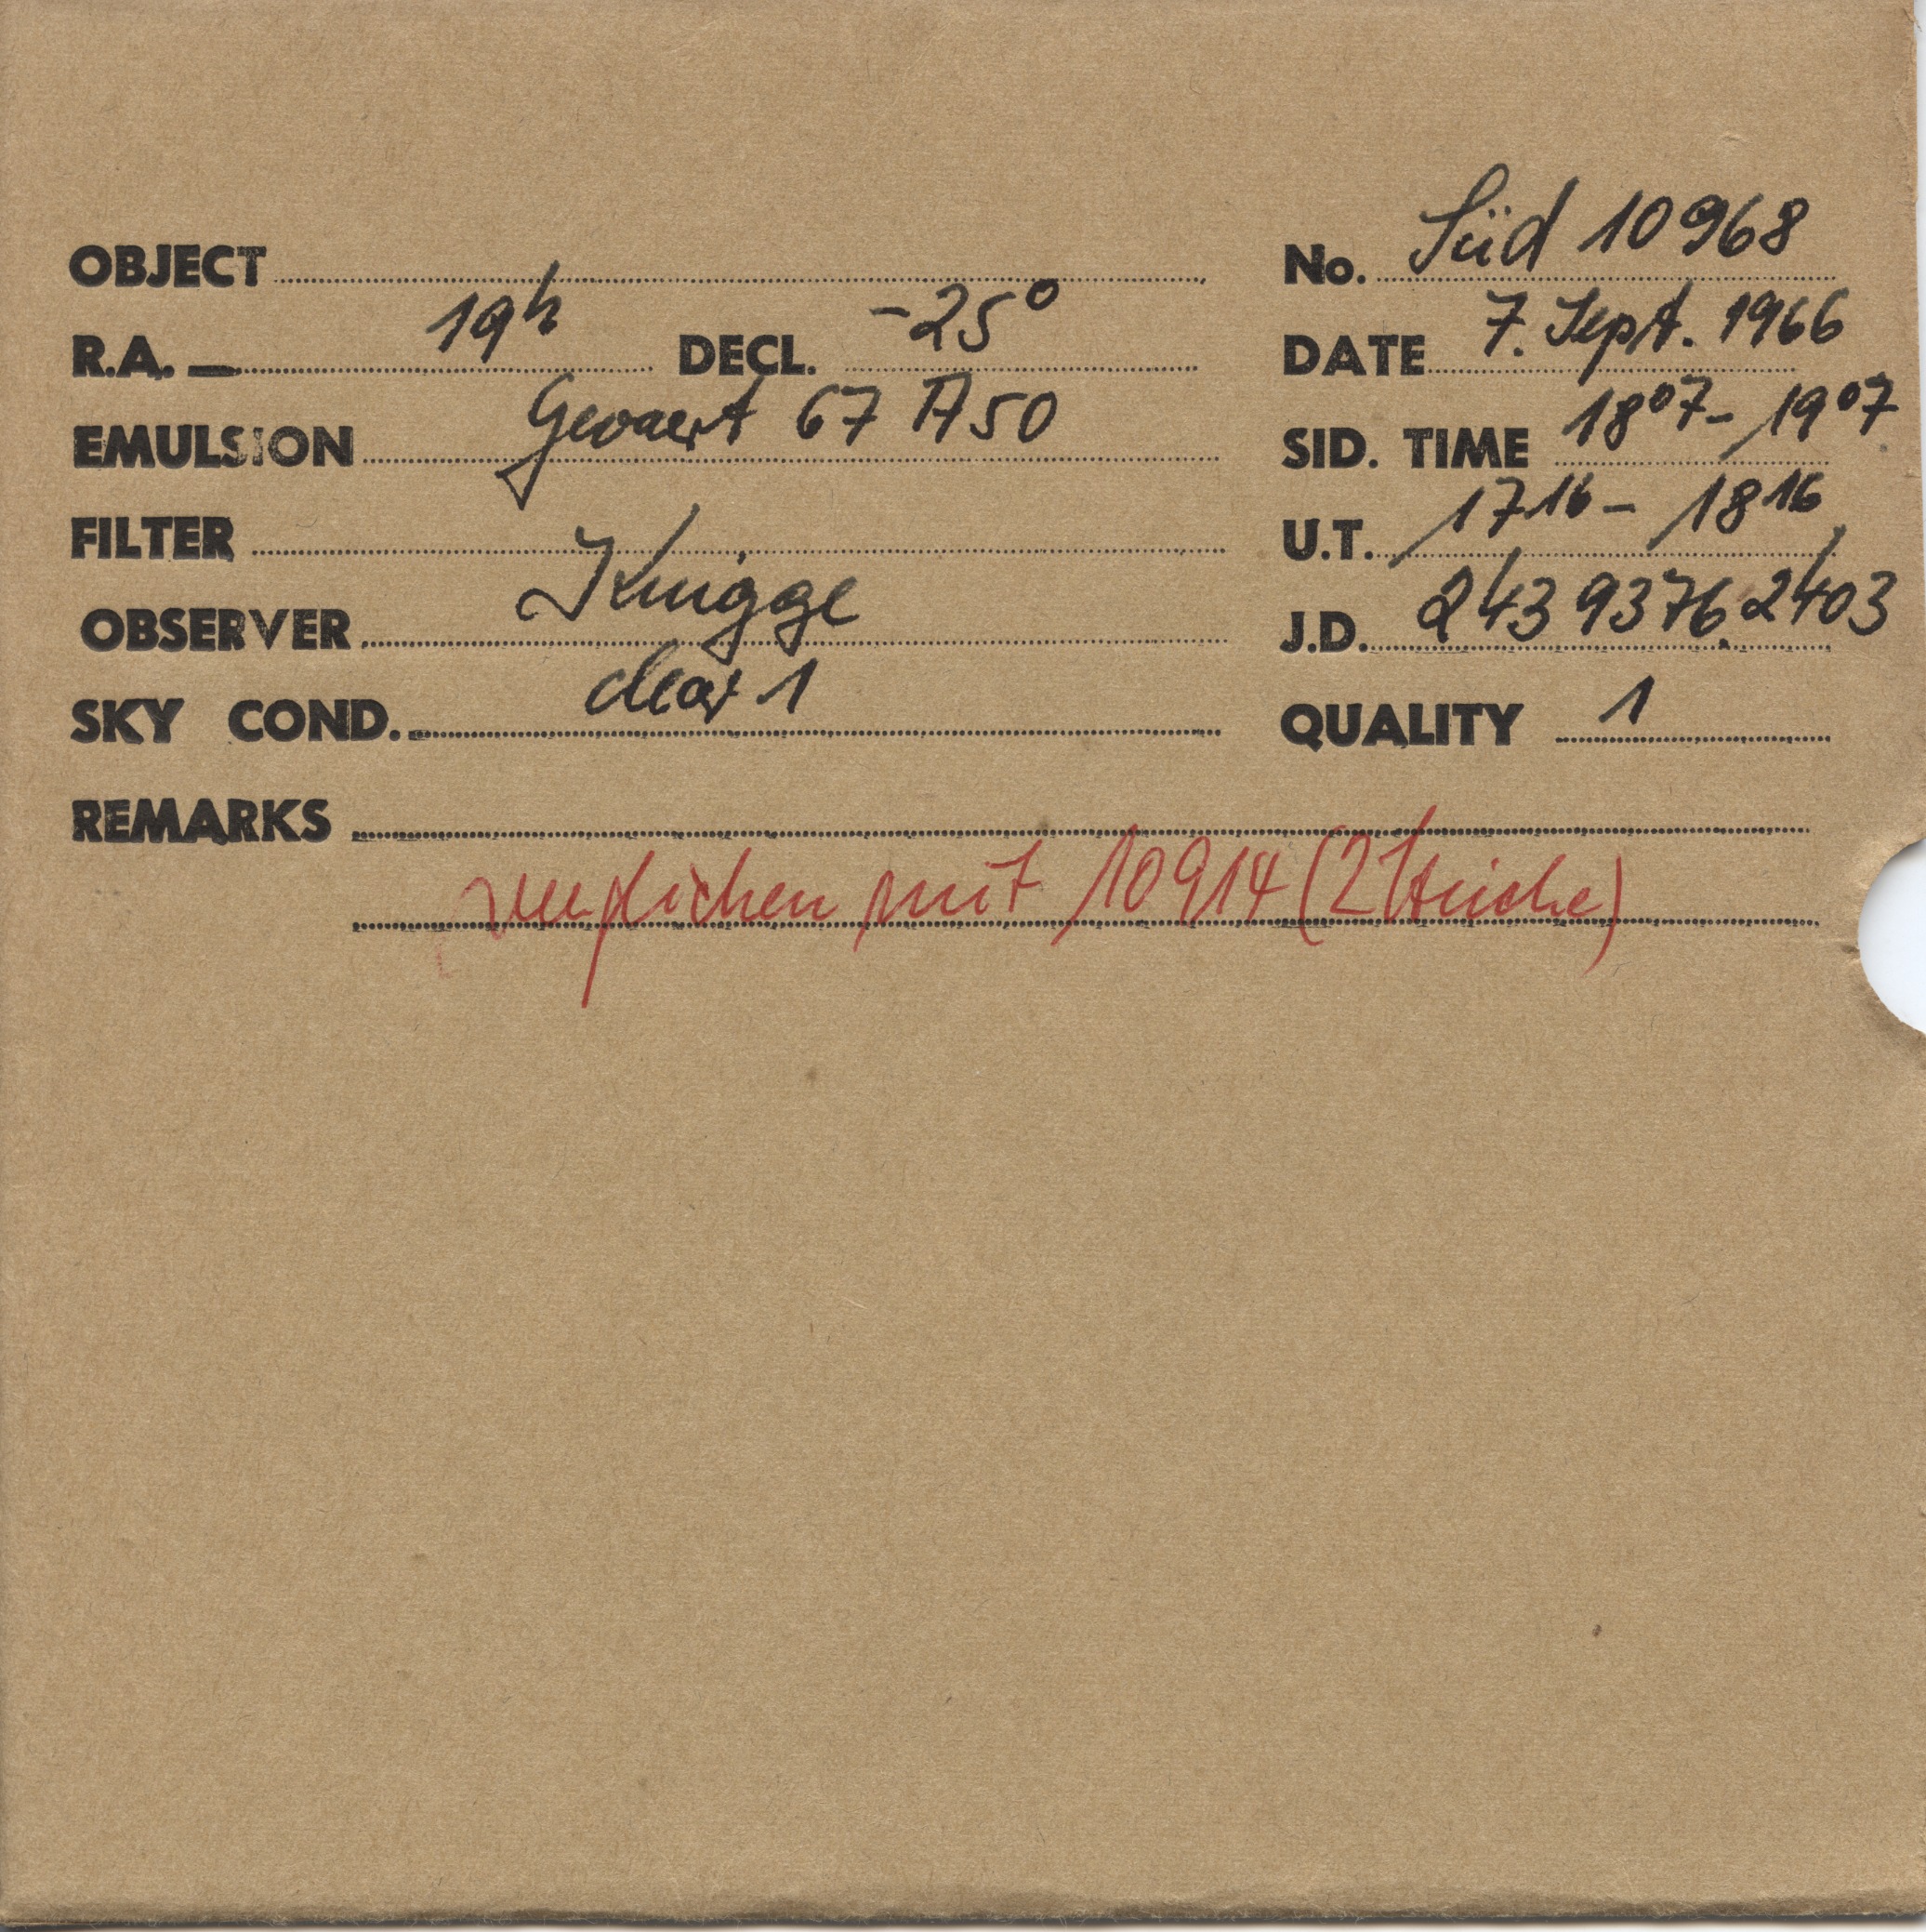 OBJECT
No. Süd 10968
R.A. — 19h DECL. -25°
DATE 7. Sept. 1966
EMULSION Gevaert 67 A50
SID. TIME 18 07 - 19 07
FILTER
U.T. 17 16 - 18 16
OBSERVER Knigge
J.D. 243 9376.2403
SKY COND. clear 1
QUALITY 1
REMARKS
verglichen mit 10914 (2 Striche)